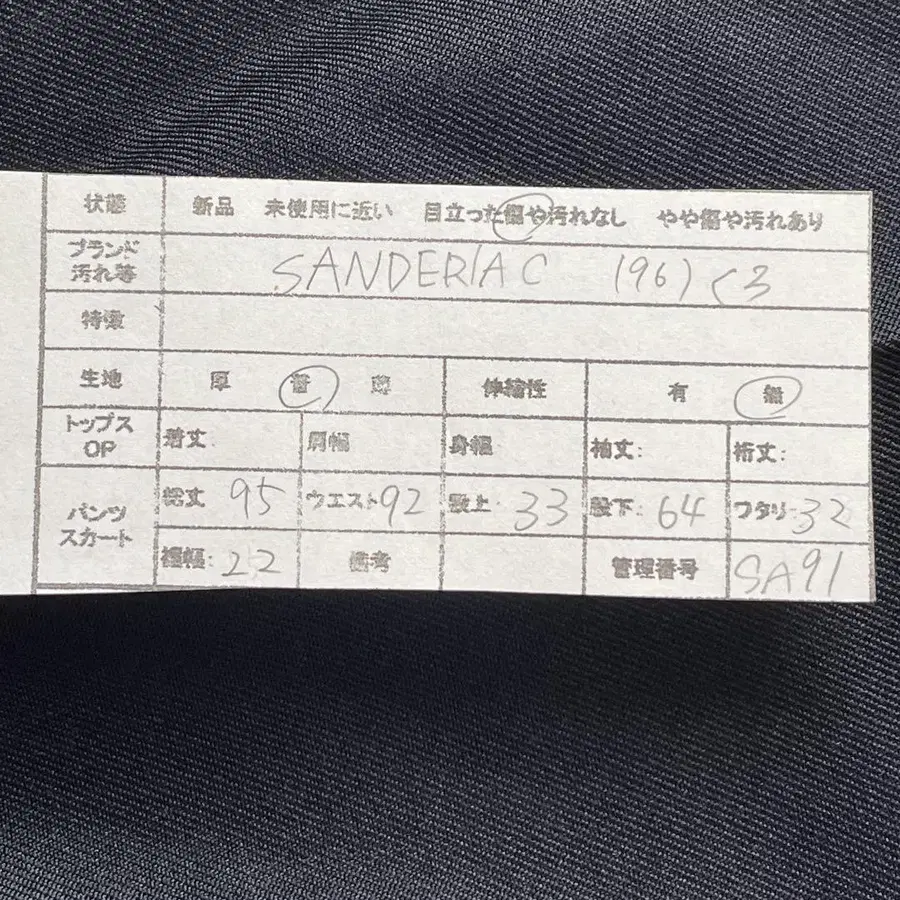 状態 新品 未使用に近い 目立った傷や汚れなし やや傷や汚れあり
ブランド
汚れ等 SANDERIAC (96) <3
特徴
生地 厚 普 薄 伸縮性 有 無
トップス
OP 着丈: 肩幅 身幅 袖丈: 裄丈:
パンツ
スカート 総丈 95 ウエスト 92 股上: 33 股下: 64 ワタリ: 32
裾幅: 22 備考 管理番号 SA91